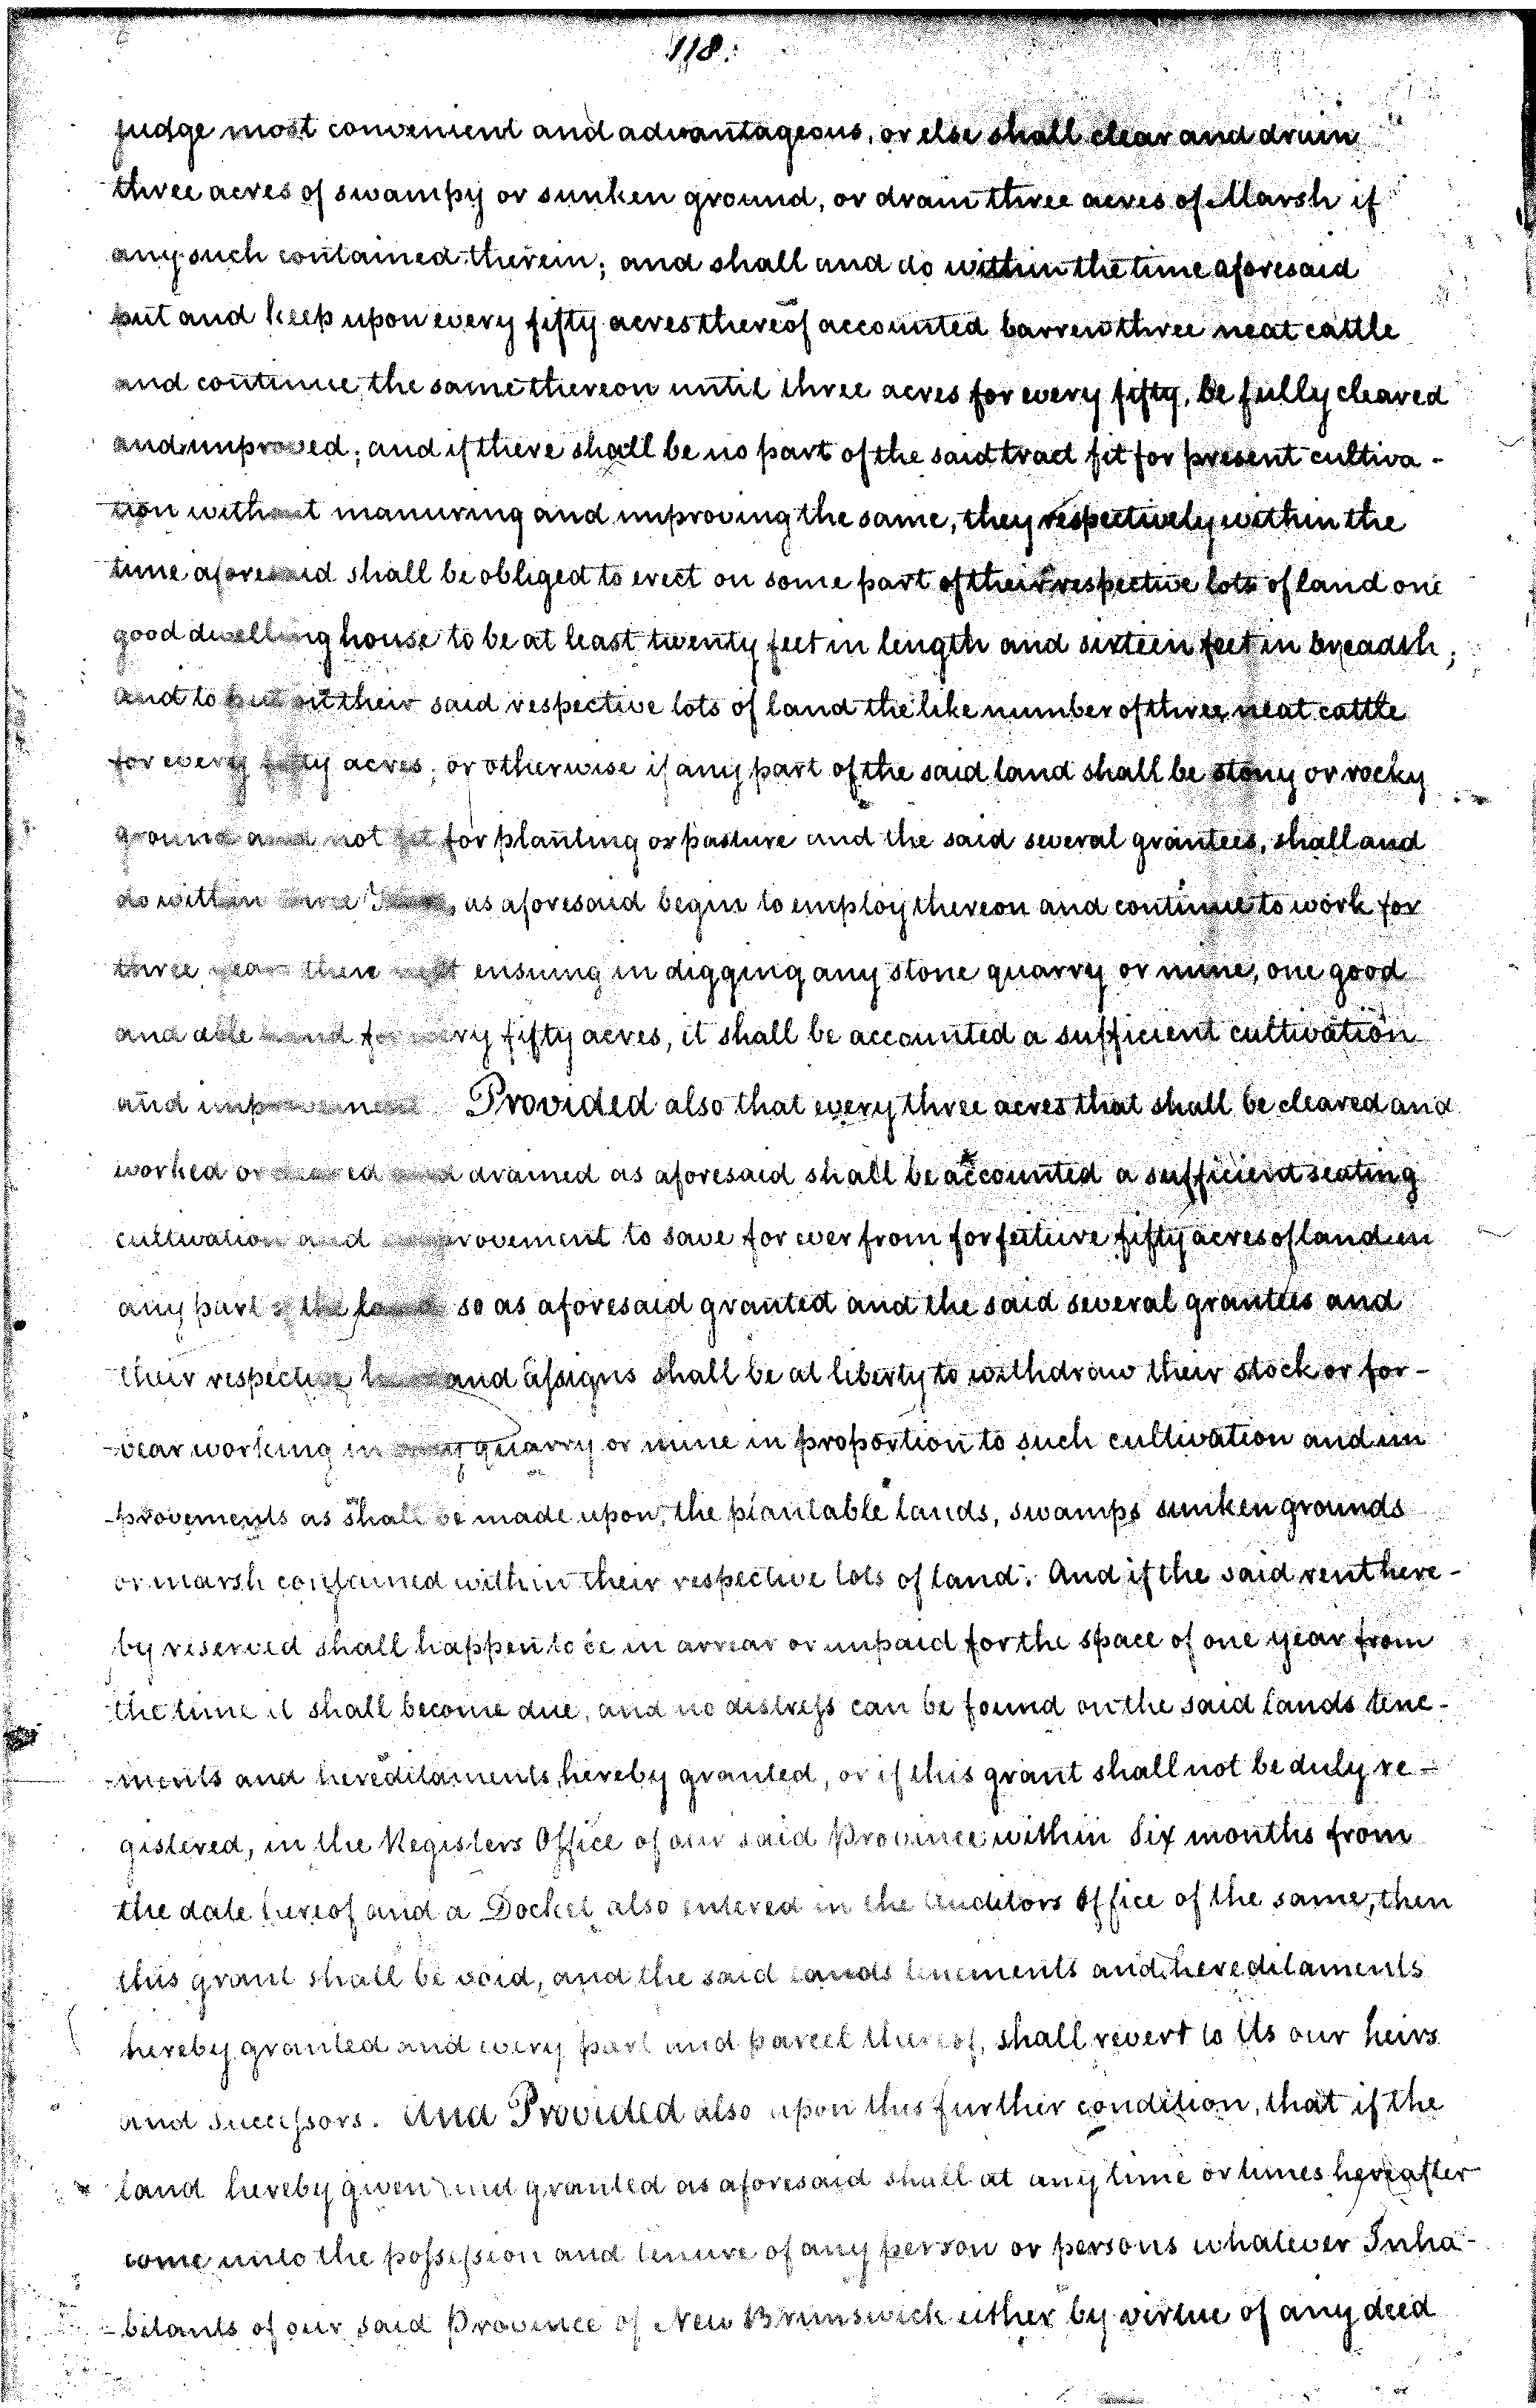 118.
judge most convenient and advantageous, or else shall clear and drain
three acres of swampy or sunken ground, or drain three acres of Marsh if
any such contained therein; and shall and do within the time aforesaid
put and keep upon every fifty acres thereof accounted barren three neat cattle
and continue the same thereon until three acres for every fifty, be fully cleared
and improved; and if there shall be no part of the said tract fit for present cultiva-
tion without manuring and improving the same, they respectively within the
time aforesaid shall be obliged to erect on some part of their respective lots of land one
good dwelling house to be at least twenty feet in length and sixteen feet in breadth;
and to put on their said respective lots of land the like number of three neat cattle
for every fifty acres; or otherwise if any part of the said land shall be stony or rocky
ground and not fit for planting or pasture and the said several grantees, shall and
do within three Years, as aforesaid begin to employ thereon and continue to work for
three years then next ensuing in digging any stone quarry or mine, one good
and able hand for every fifty acres, it shall be accounted a sufficient cultivation
and improvement Provided also that every three acres that shall be cleared and
worked or cleared and drained as aforesaid shall be accounted a sufficient seating
cultivation and improvement to save for ever from forfeiture fifty acres of land in
any part of the land so as aforesaid granted and the said several grantees and
their respective heirs and assigns shall be at liberty to withdraw their stock or for-
bear working in any quarry or mine in proportion to such cultivation and im
-provements as shall be made upon, the plantable lands, swamps sunken grounds
or marsh contained within their respective lots of land. And if the said rent here-
by reserved shall happen to be in arrear or unpaid for the space of one year from
the time it shall become due, and no distress can be found on the said lands tene-
-ments and hereditaments, hereby granted, or if this grant shall not be duly re-
gistered, in the Registers Office of our said Province within Six months from
the date hereof and a Docket also entered in the Auditors Office of the same, then
this grant shall be void, and the said lands tenements and hereditaments
hereby granted and every part and parcel thereof, shall revert to Us our heirs
and successors. And Provided also upon this further condition, that if the
land hereby given and granted as aforesaid shall at any time or times hereafter
come unto the possession and tenure of any person or persons whatever Inha-
-bitants of our said Province of New Brunswick either by virtue of any deed